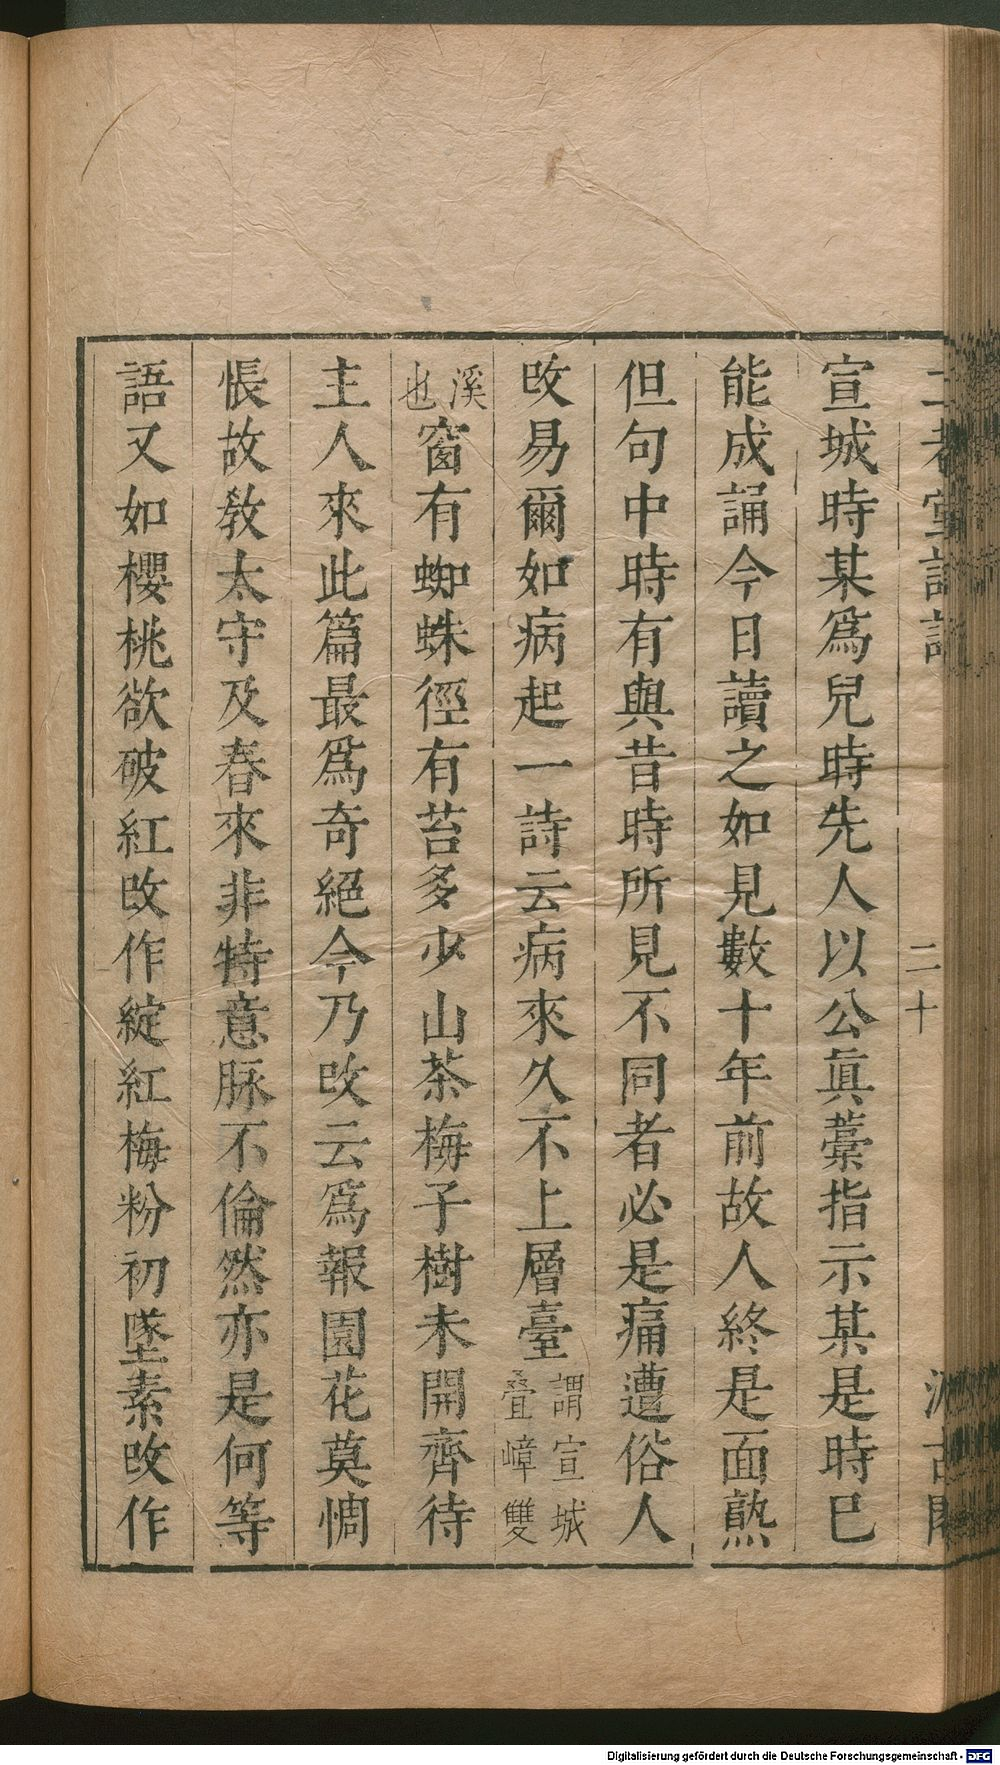 二老堂詩話 二十 汲古閣
宣城時某爲兒時先人以公眞藁指示某是時巳
能成誦今日讀之如見數十年前故人終是面熟
但句中時有與昔時所見不同者必是痛遭俗人
改易爾如病起一詩云病來久不上層臺謂宣城疊嶂雙
溪也窗有蜘蛛徑有苔多少山茶梅子樹未開齊待
主人來此篇最爲奇絕今乃改云爲報園花莫惆
悵故敎太守及春來非特意脉不倫然亦是何等
語又如櫻桃欲破紅改作綻紅梅粉初墜素改作
Digitalisierung gefördert durch die Deutsche Forschungsgemeinschaft - DFG